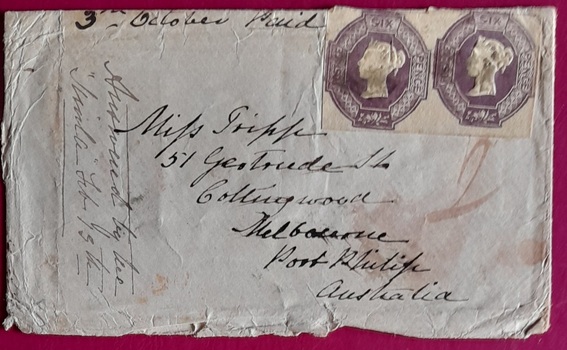 3rd October Paid
SIX PENCE
SIX PENCE
Miss Tripp
51 Gertrude St
Collingwood
Melbourne
Port Philip
Australia
Answered by the